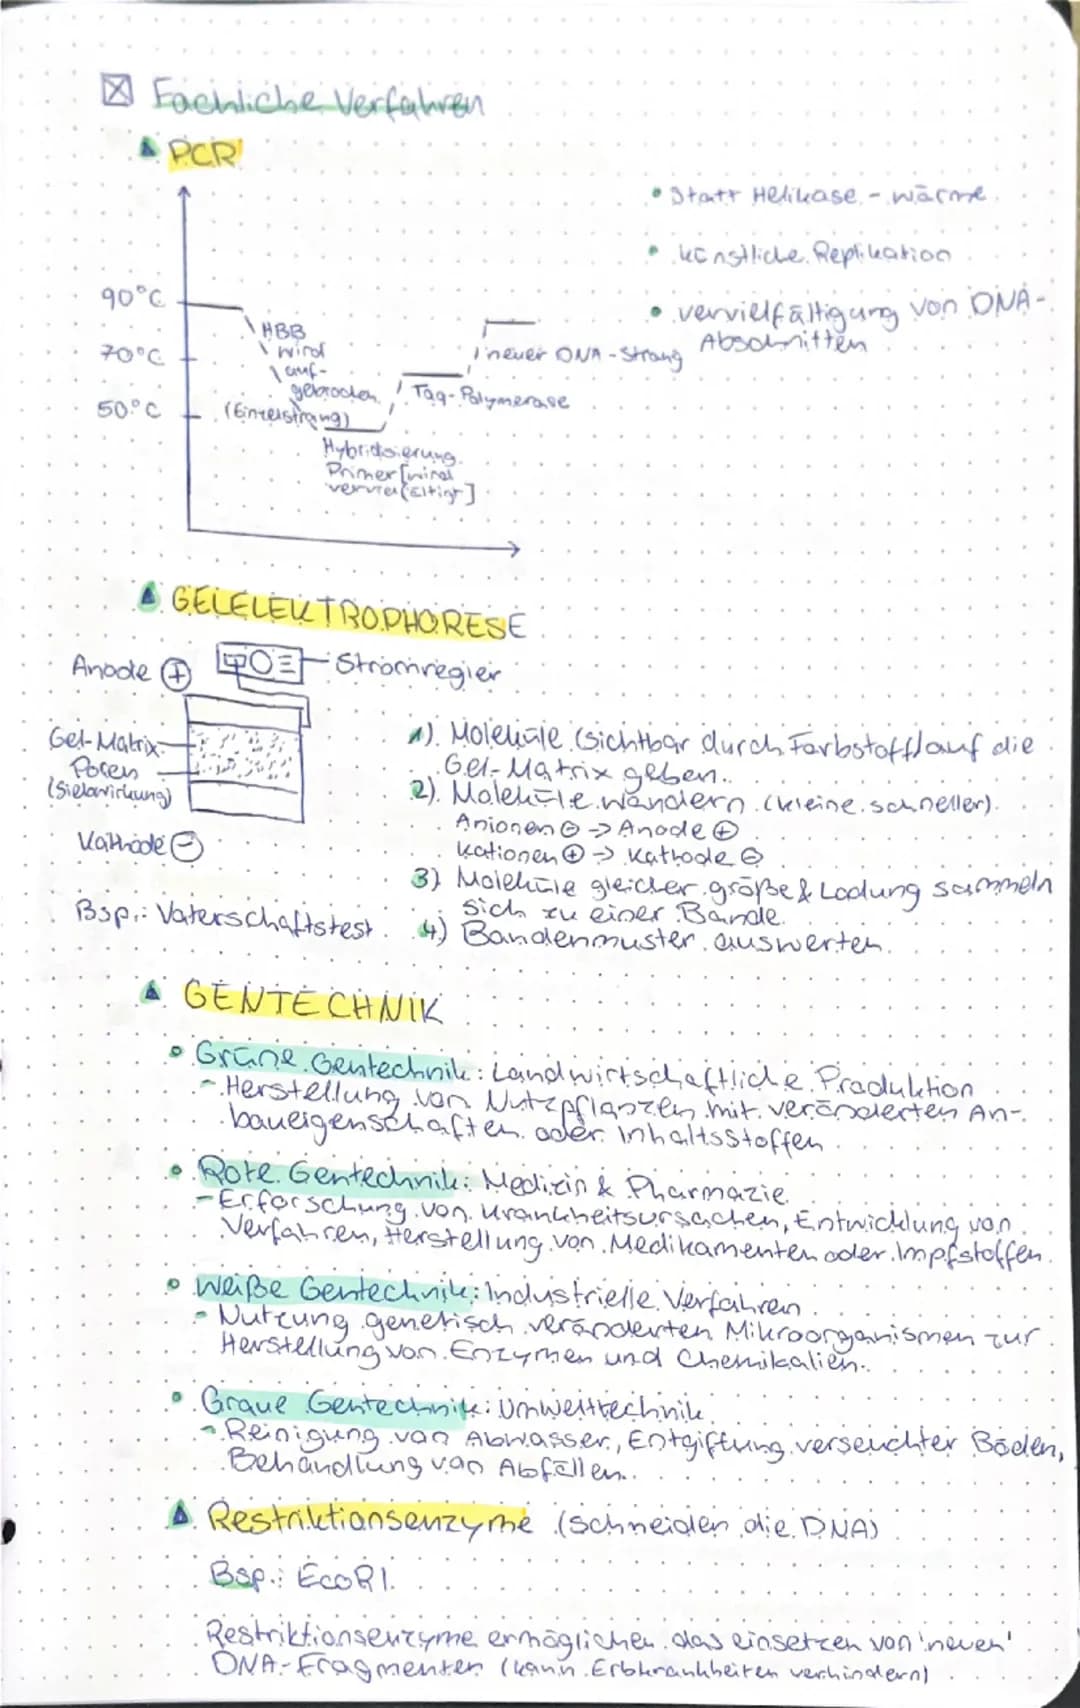 Fachliche Verfahren
PCR
• Statt Helikase - wärme
• künstliche Replikation
• vervielfältigung von DNA-
Abschnitten
90°C
70°C
50°C
HBB
wird
auf-
gebrochen
(Einzelstrang)
Hybridisierung
Primer [wird
vervielfältigt]
Taq-Polymerase
neuer DNA-Strang
GELELEKTROPHORESE
Anode +
Stromregler
Gel-Matrix
Poren
(Siebwirkung)
Kathode -
Bsp.: Vaterschaftstest
1) Moleküle (sichtbar durch Farbstoff) auf die
Gel-Matrix geben.
2) Moleküle wandern (kleine schneller)
Anionen ⊖ -> Anode ⊕
Kationen ⊕ -> Kathode ⊖
3) Moleküle gleicher größe & Ladung sammeln
sich zu einer Bande
4) Bandenmuster auswerten
GENTECHNIK
• Grüne Gentechnik: Landwirtschaftliche Produktion
- Herstellung von Nutzpflanzen mit veränderten An-
baueigenschaften oder Inhaltsstoffen
• Rote Gentechnik: Medizin & Pharmazie
- Erforschung von Krankheitsursachen, Entwicklung von
Verfahren, Herstellung von Medikamenten oder Impfstoffen
• Weiße Gentechnik: Industrielle Verfahren
- Nutzung genetisch veränderten Mikroorganismen zur
Herstellung von Enzymen und Chemikalien.
• Graue Gentechnik: Umwelttechnik
- Reinigung von Abwasser, Entgiftung verseuchter Böden,
Behandlung von Abfällen.
Restriktionsenzyme (schneiden die DNA)
Bsp.: EcoRI
Restriktionsenzyme ermöglichen das einsetzen von 'neuen'
DNA-Fragmenten (kann Erbkrankheiten verhindern)